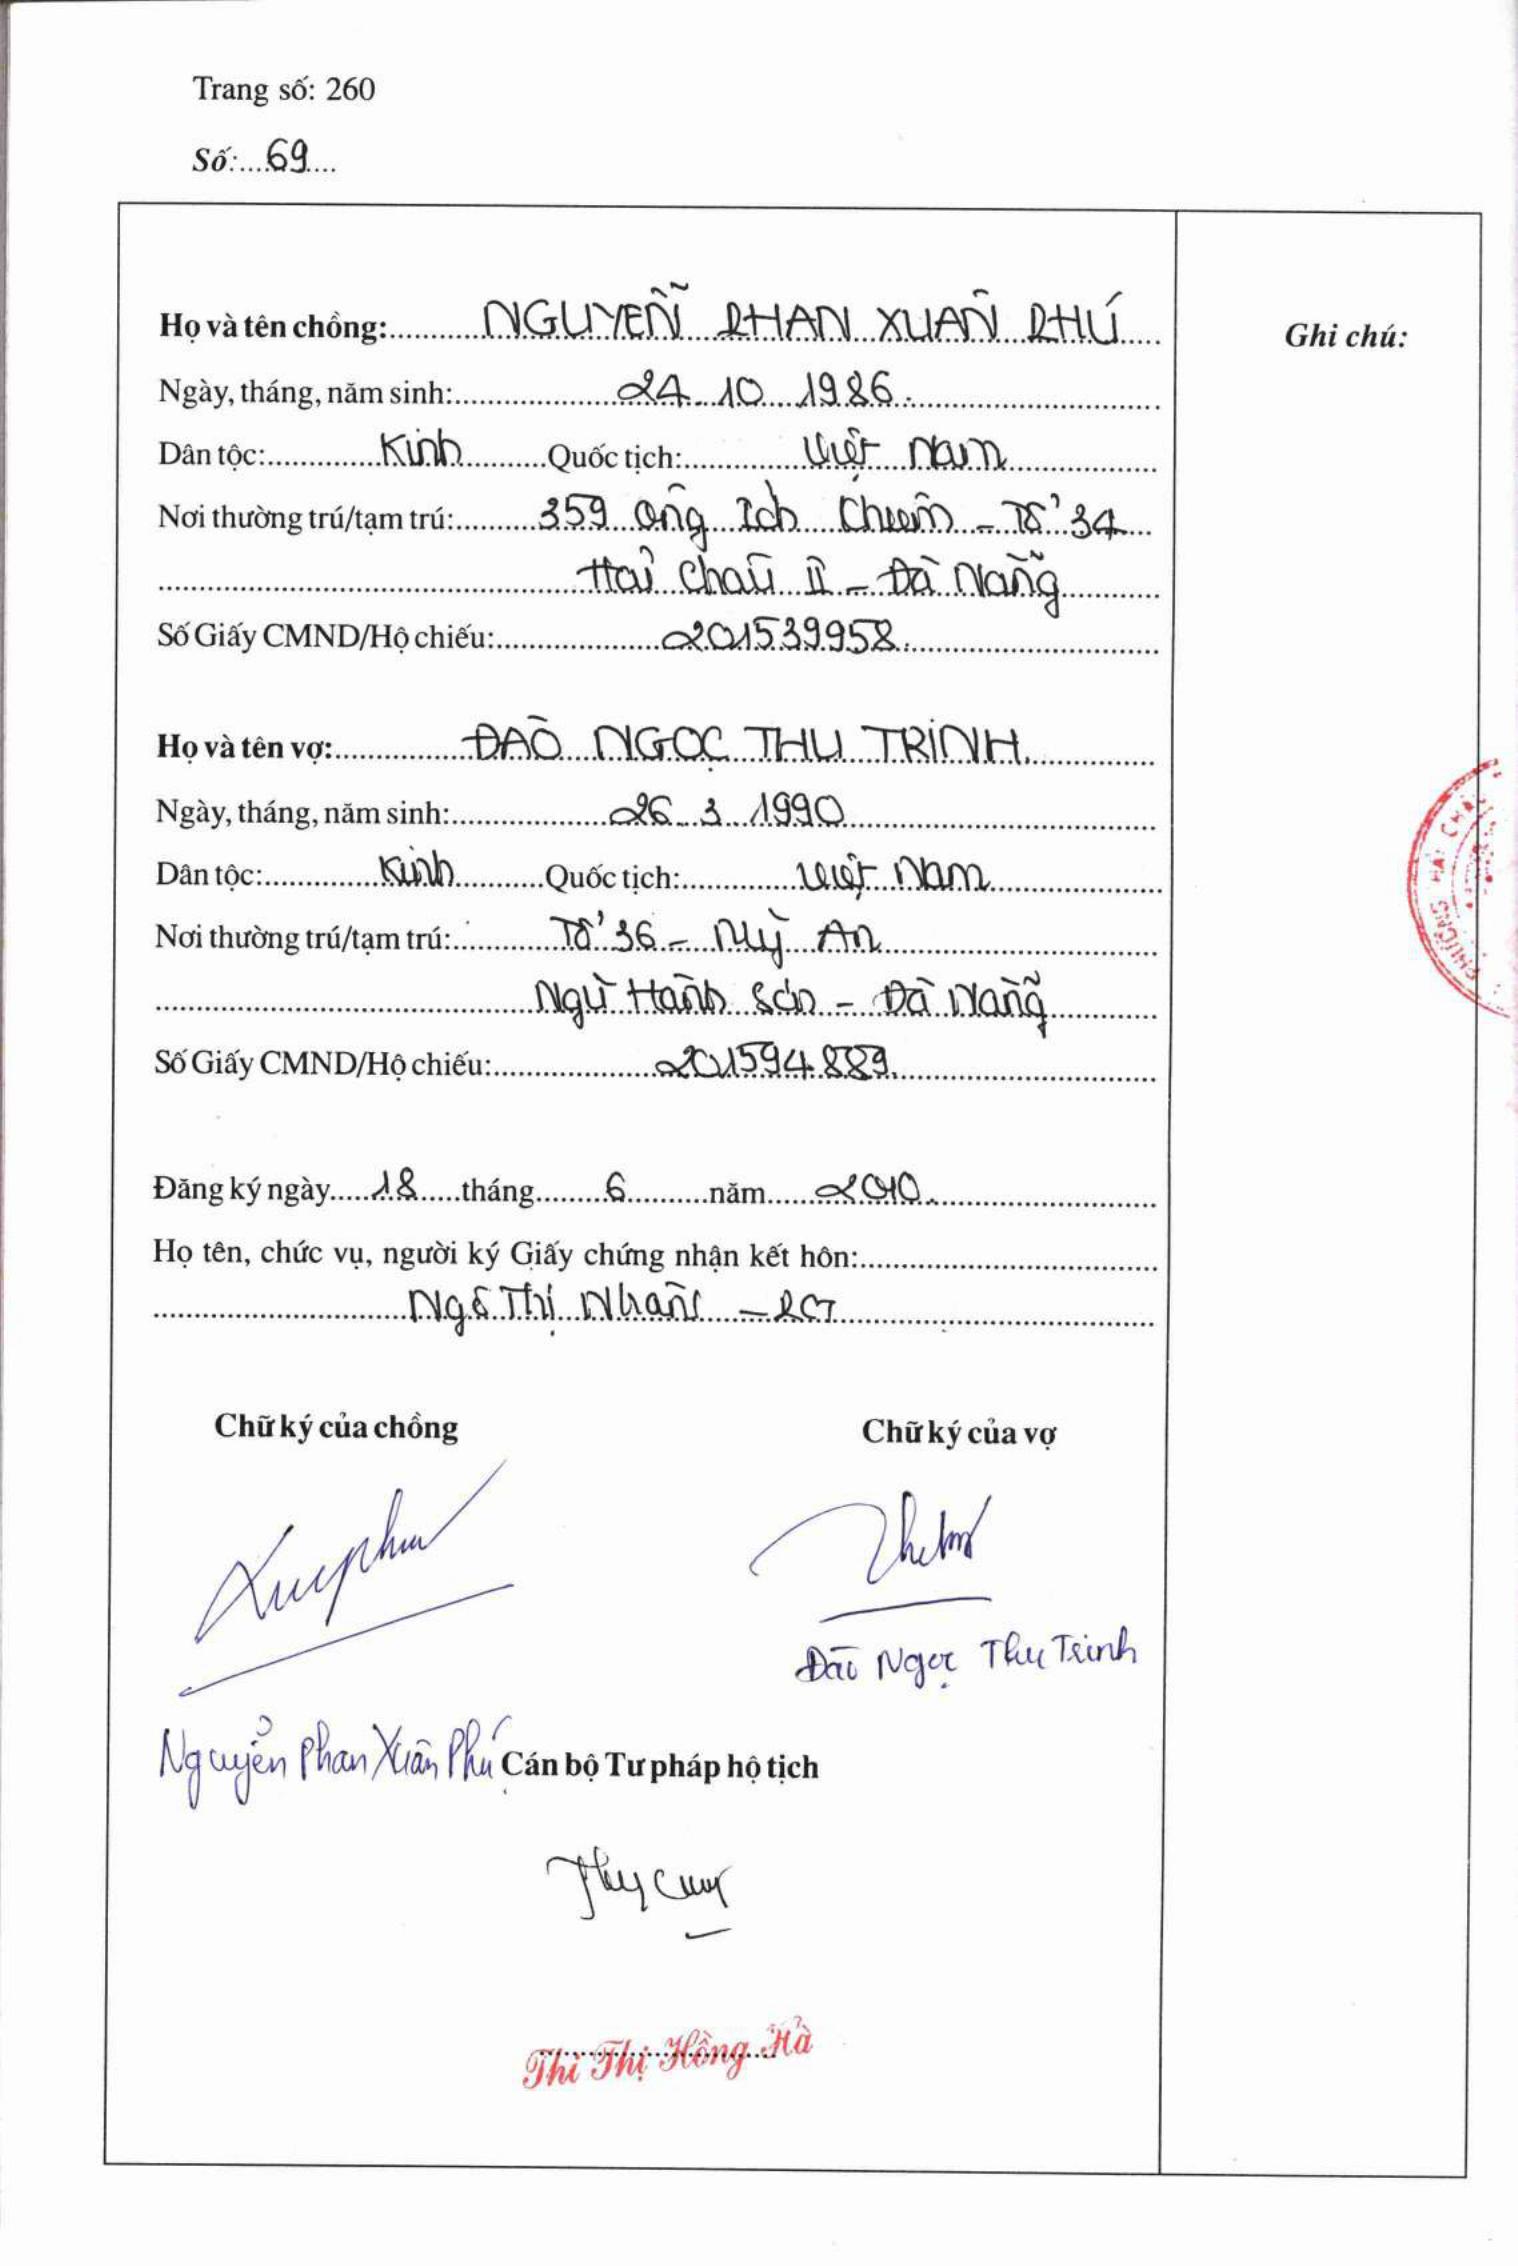 Trang số: 260
Số:....69....
Họ và tên chồng: NGUYỄN PHAN XUÂN PHÚ
Ghi chú:
Ngày, tháng, năm sinh: 24 10 1986
Dân tộc: Kinh Quốc tịch: Việt Nam
Nơi thường trú/tạm trú: 359 Ông Ích Khiêm - Tổ 34
Hải Châu II - Đà Nẵng
Số Giấy CMND/Hộ chiếu: 201539958
Họ và tên vợ: ĐÀO NGỌC THU TRINH
Ngày, tháng, năm sinh: 26 3 1990
Dân tộc: Kinh Quốc tịch: Việt Nam
Nơi thường trú/tạm trú: Tổ 36 - Mỹ An
Ngũ Hành Sơn - Đà Nẵng
Số Giấy CMND/Hộ chiếu: 201594889
PHƯỜNG HẢI CHÂU
Đăng ký ngày 18 tháng 6 năm 2010
Họ tên, chức vụ, người ký Giấy chứng nhận kết hôn:
Ngô Thị Nhạn - PCT
Chữ ký của chồng Chữ ký của vợ
Đào Ngọc Thu Trinh
Nguyễn Phan Xuân Phú
Cán bộ Tư pháp hộ tịch
Thi Thị Hồng Hà